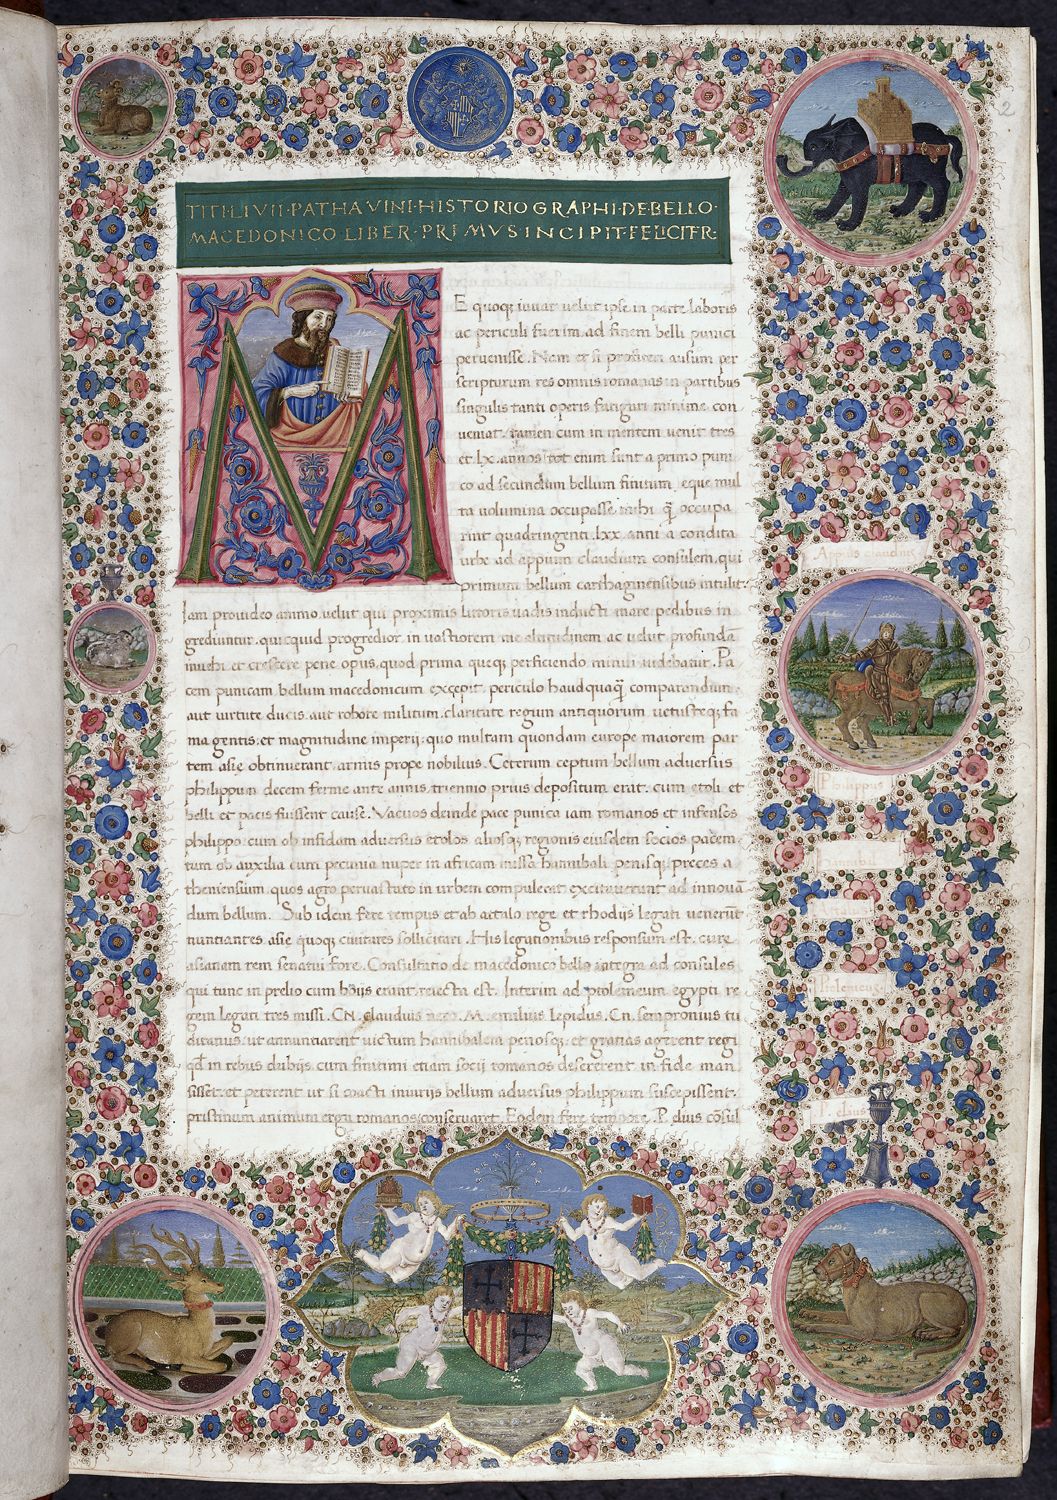 2
TITI·LIVII·PATHAVINI·HISTORIOGRAPHI·DE·BELLO·
MACEDONICO·LIBER·PRIMVS·INCIPIT·FELICITER·
M
E quoq; iuvat velut ipse in parte laboris
ac periculi fuerim. ad finem belli punici
pervenisse. Nam et si profiteri ausum per
scripturum res omnis romanas in partibus
singulis tanti operis fatigari minime con
veniat. tamen cum in mentem venit tres
et lx. annos tot enim sunt a primo puni
co ad secundum bellum finitum. eque mul
ta volumina occupasse mihi q̃ occupa
rint quadringenti lxx anni a condita
urbe ad appium claudium consulem. qui
primum bellum carthaginensibus intulit.
Iam provideo animo. velut qui proximis littoris vadis inducti mare pedibus in
grediuntur. quicquid progredior in vastiorem me altitudinem ac velut profundũ
invehi. et crescere pene opus. quod prima queq; perficiendo minui videbatur. Pa
cem punicam bellum macedonicum excepit. periculo haudquaq̃ comparandum.
aut virtute ducis. aut robore militum. claritate regum antiquorum vetusteq; fa
ma gentis. et magnitudine imperij. quo multam quondam europe maiorem par
tem asie obtinuerant. armis prope nobilius. Ceterum ceptum bellum adversus
philippum decem ferme ante annis. triennio prius depositum erat. cum etoli et
belli et pacis fuissent cause. Vacuos deinde pace punica iam romanos et infensos
philippo. cum ob infidam adversus etolos. aliosq; regionis eiusdem socios pacem.
tum ob auxilia cum pecunia nuper in africam missa hannibali penisq; preces a
theniensium. quos agro pervastato in urbem compulerat. excitaverunt ad innovã
dum bellum. Sub idem fere tempus et ab actalo rege. et rhodijs legati venerũt
nuntiantes. asie quoq; civitates sollicitari. His legationibus responsum est. cure
asianam rem senatui fore. Consultatio de macedonico bello integra ad consules
qui tunc in prelio cum bõijs erant reiecta est. Interim ad ptolemeum egypti re
gem legati tres missi. CN. claudius nero. M. emilius lepidus. Cn. sempronius tu
ditanus. ut annunciarent victum hannibalem penosq; et gratias agerent regi
qđ in rebus dubijs. cum finitimi etiam socij romanos desererent. in fide man
sisset. et peterent ut si coacti iniurijs bellum adversus philippum suscepissent.
pristinum animum erga romanos conservaret. Eodem fere tempore. P. elius cõsul
Appius claudius
Philippus
Hannibal
Ptolemeus
P. elius